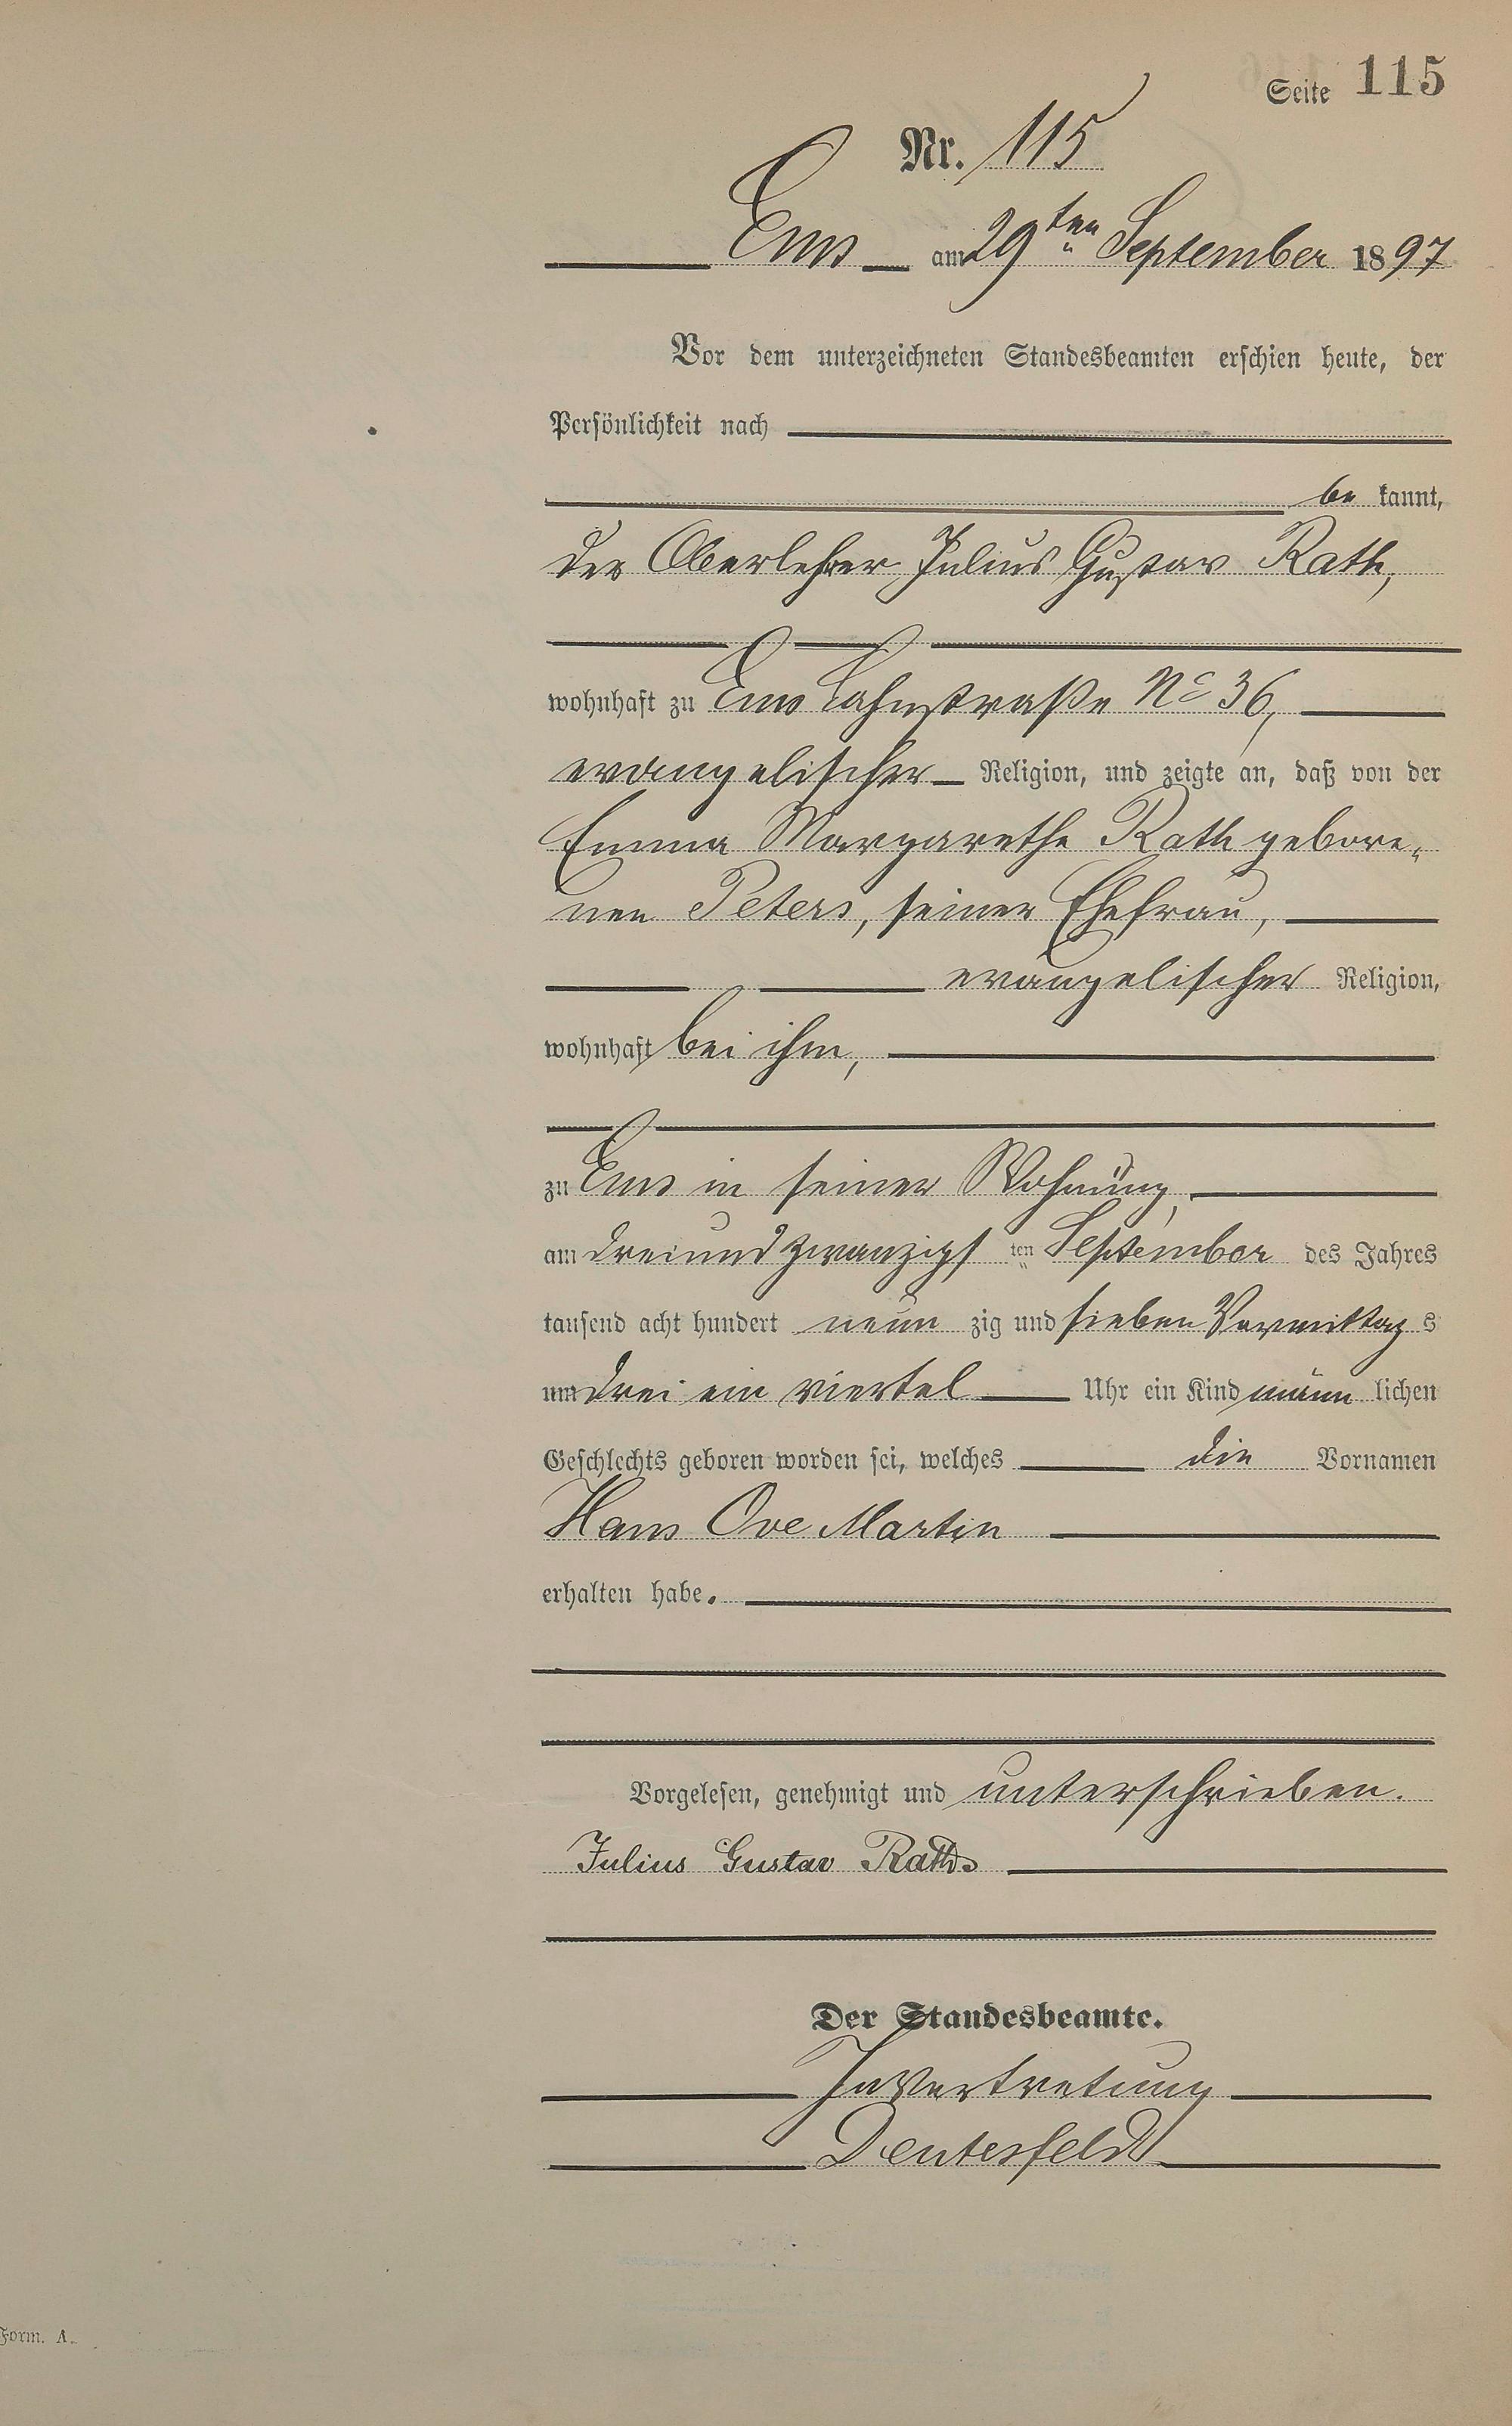 Seite 115
Nr. 115
Ems am 29ten September 1897
Vor dem unterzeichneten Standesbeamten erschien heute, der
Persönlichkeit nach
be kannt,
der Oberlehrer Julius Gustav Rath,
wohnhaft zu Ems Lahnstraße No 36,
evangelischer Religion, und zeigte an, daß von der
Emma Margarethe Rath gebore-
nen Peters, seiner Ehefrau,
evangelischer Religion,
wohnhaft bei ihm,
zu Ems in seiner Wohnung,
am dreiundzwanzigs ten September des Jahres
tausend acht hundert neun zig und sieben Vormittag s
um drei ein viertel Uhr ein Kind männ lichen
Geschlechts geboren worden sei, welches die Vornamen
Hans Ove Martin
erhalten habe.
Vorgelesen, genehmigt und unterschrieben.
Julius Gustav Rath
Der Standesbeamte.
In Vertretung
Deutesfeld
Form. A.